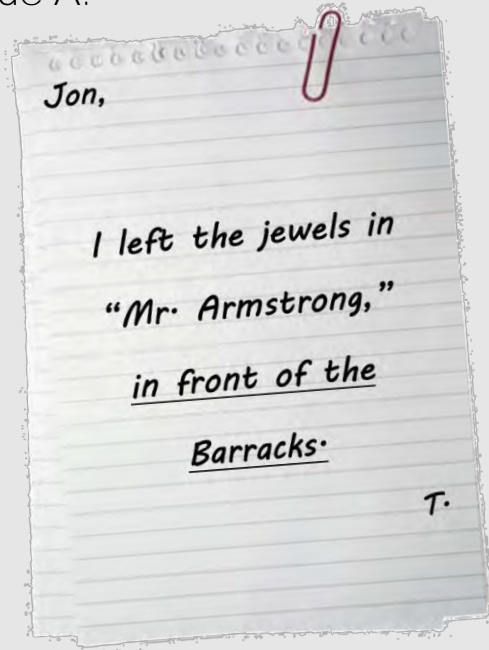 Jon,
I left the jewels in
“Mr. Armstrong,”
in front of the
Barracks.
T.